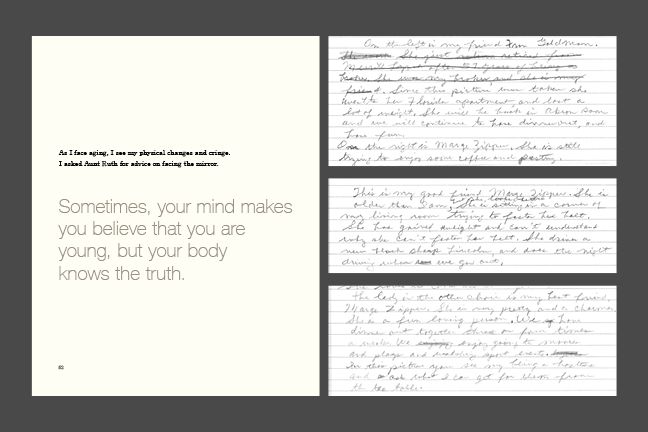 As I face aging, I see my physical changes and cringe.
I asked Aunt Ruth for advice on facing the mirror.
Sometimes, your mind makes
you believe that you are
young, but your body
knows the truth.
On the left is my friend Fran Goldman.
She was my broker and she is my
friend. Since this picture was taken she
went to her Florida apartment, and lost a
lot of weight. She will be back in Akron soon
and we will continue to have dinner out, and
have fun.
On the right is Marge Zipper. She is still
trying to enjoy some coffee and pastry.
This is my good friend Marge Zipper. She is
older than I am, She is sitting in a corner of
my living room trying to fasten her belt.
She has gained weight and can't understand
why she can't fasten her belt. She drives a
new black Lincoln, and does the night
driving when we go out.
the lady in the other chair is my best friend,
Marge Zipper. She is very pretty and a charmer.
She is a fun loving person. We have
dinner out together three or four times
a week. We enjoy going to movies
and plays and watching sport events.
In this picture you see me being a hostess
and ask what I can get for them from
the table.